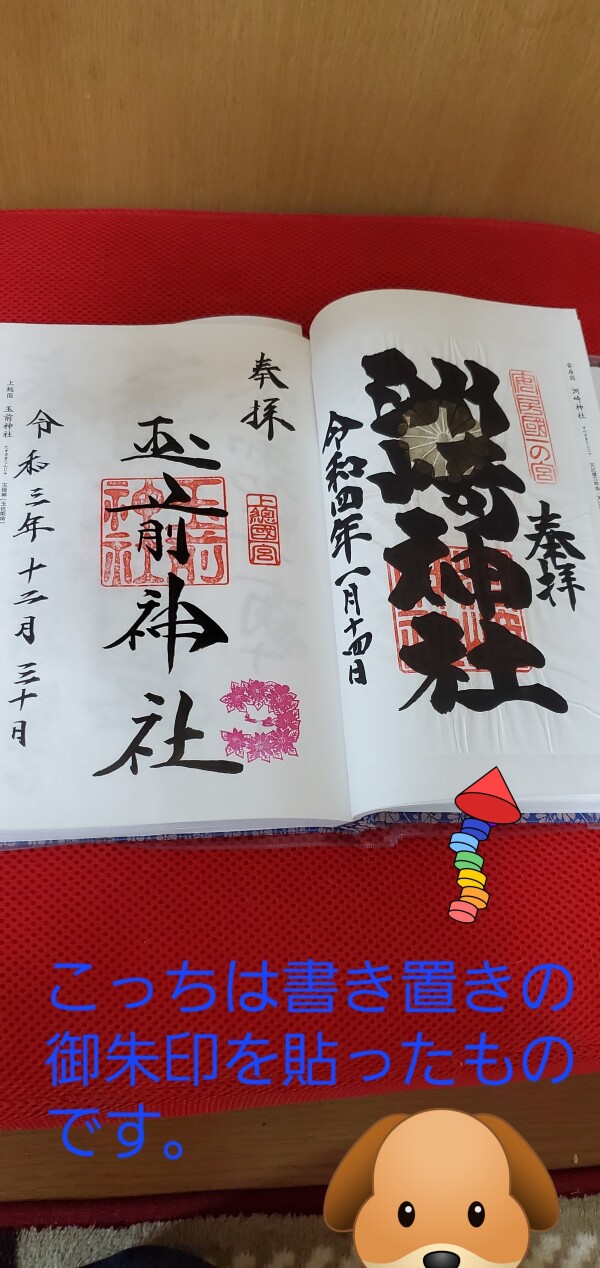 安房國 洲崎神社
安房國一の宮
奉拝
洲崎神社
令和四年一月十四日
奉拝
上總國一宮
玉前神社
玉前神社
令和三年十二月三十日
上総国 玉前神社
こっちは書き置きの
御朱印を貼ったもの
です。